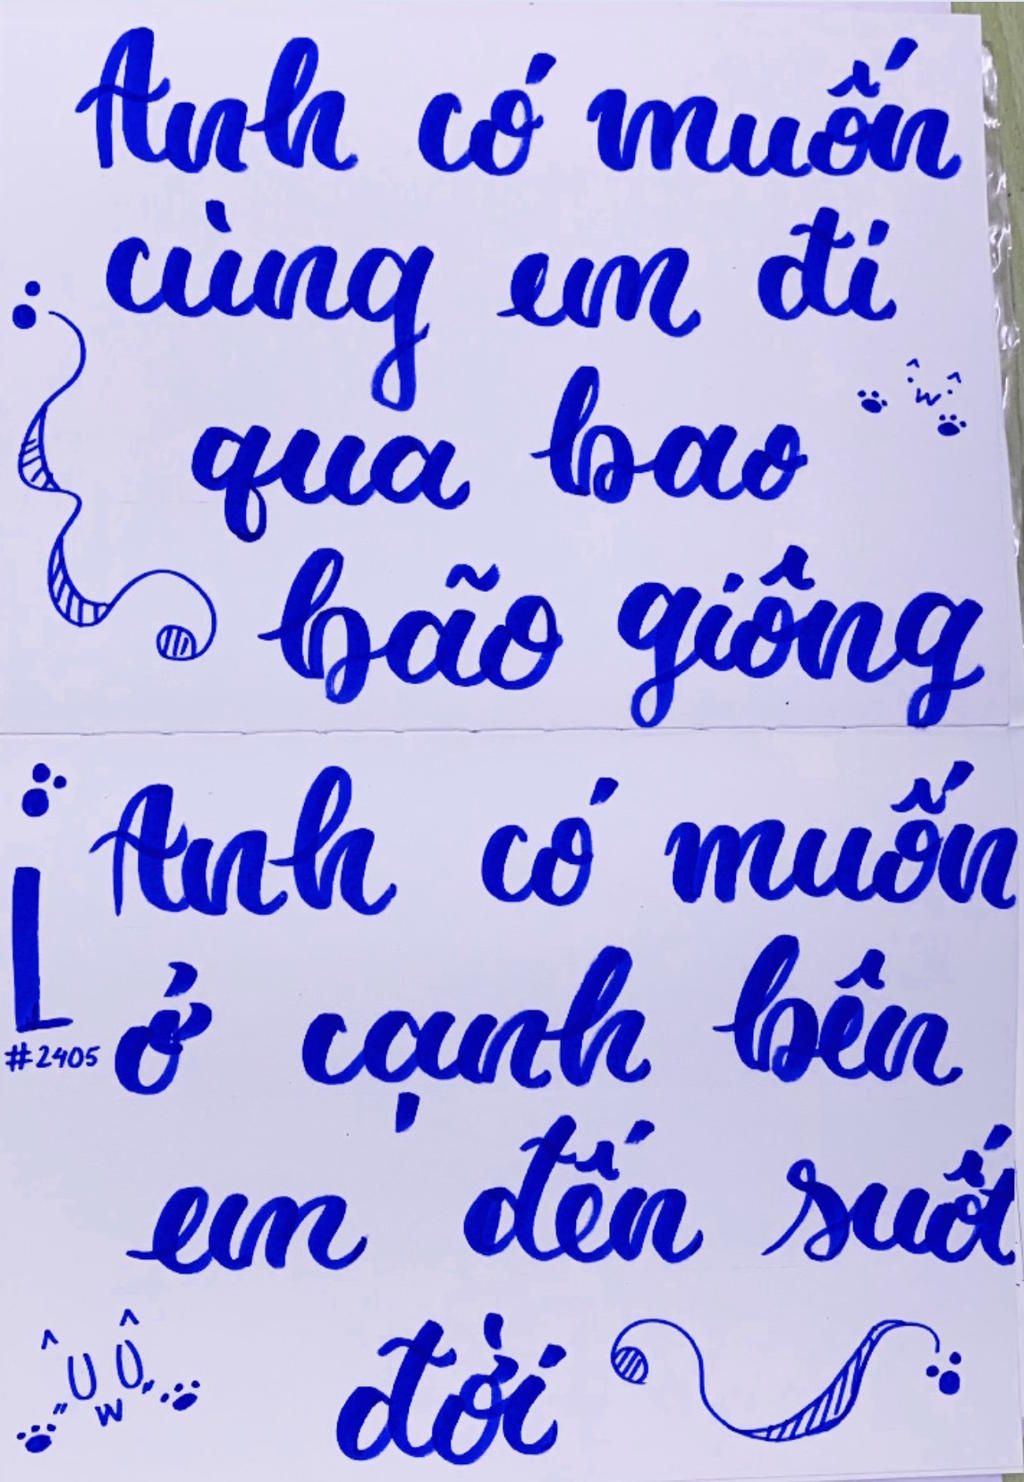 Anh có muốn
cùng em đi
qua bao
bão giông
Anh có muốn
ở cạnh bên
em đến suốt
đời
L
#2405
UwU